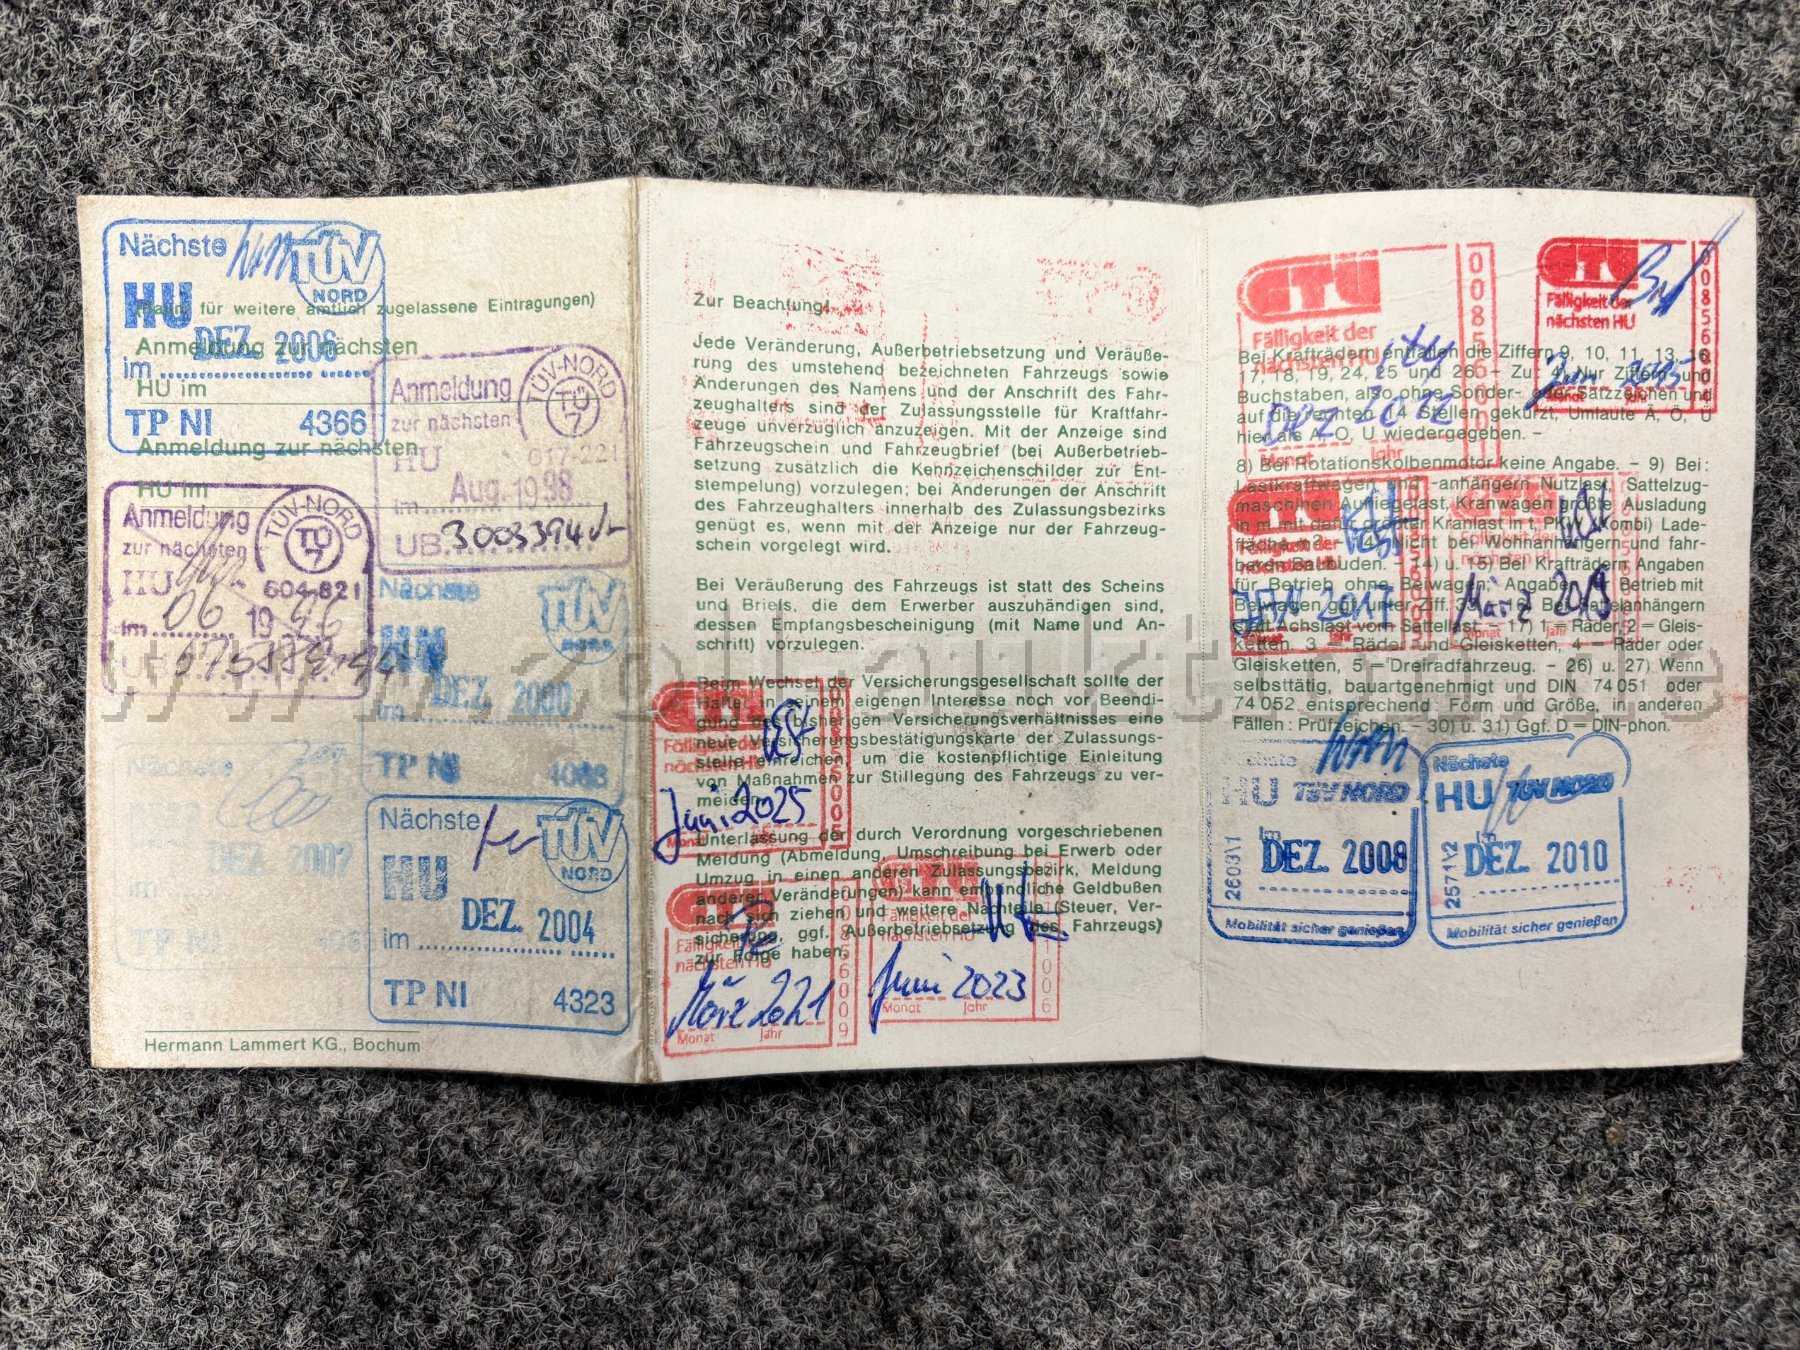 Nächste
TÜV
NORD
HU
im DEZ. 2006
TP NI 4366
(Raum für weitere amtlich zugelassene Eintragungen)
Anmeldung zur nächsten
HU im
Anmeldung zur nächsten
HU im
Anmeldung
zur nächsten
TÜV-NORD
TÜ
7
HU 017-221
im Aug. 1998
UB 3003394
Anmeldung
zur nächsten
TÜV-NORD
TÜ
7
HU 604-821
im 06 19 96
UB
Nächste
TÜV
NORD
HU
im DEZ. 2000
TP NI
Nächste
DEZ. 2002
im
TP NI
Nächste
TÜV
NORD
HU
im DEZ. 2004
TP NI 4323
Hermann Lammert KG., Bochum
Zur Beachtung!
Jede Veränderung, Außerbetriebsetzung und Veräuße-
rung des umstehend bezeichneten Fahrzeugs sowie
Änderungen des Namens und der Anschrift des Fahr-
zeughalters sind der Zulassungsstelle für Kraftfahr-
zeuge unverzüglich anzuzeigen. Mit der Anzeige sind
Fahrzeugschein und Fahrzeugbrief (bei Außerbetrieb-
setzung zusätzlich die Kennzeichenschilder zur Ent-
stempelung) vorzulegen; bei Änderungen der Anschrift
des Fahrzeughalters innerhalb des Zulassungsbezirks
genügt es, wenn mit der Anzeige nur der Fahrzeug-
schein vorgelegt wird.
Bei Veräußerung des Fahrzeugs ist statt des Scheins
und Briefs, die dem Erwerber auszuhändigen sind,
dessen Empfangsbescheinigung (mit Name und An-
schrift) vorzulegen.
Beim Wechsel der Versicherungsgesellschaft sollte der
Halter in seinem eigenen Interesse noch vor Beendi-
gung des bisherigen Versicherungsverhältnisses eine
neue Versicherungsbestätigungskarte der Zulassungs-
stelle einreichen, um die kostenpflichtige Einleitung
von Maßnahmen zur Stillegung des Fahrzeugs zu ver-
meiden.
Unterlassung der durch Verordnung vorgeschriebenen
Meldung (Abmeldung, Umschreibung bei Erwerb oder
Umzug in einen anderen Zulassungsbezirk, Meldung
anderer Veränderungen) kann empfindliche Geldbußen
nach sich ziehen und weitere Nachteile (Steuer, Ver-
sicherung, ggf. Außerbetriebsetzung des Fahrzeugs)
zur Folge haben.
GTÜ
Fälligkeit der
nächsten HU
Juni 2025
Monat
GTÜ
Fälligkeit der
nächsten HU
März 2021
Monat Jahr
00856009
GTÜ
Fälligkeit der
nächsten HU
Juni 2023
Monat Jahr
GTÜ
Fälligkeit der
nächsten HU
DEZ
Monat Jahr
GTÜ
Fälligkeit der
nächsten HU
2015
Monat Jahr
Bei Krafträdern entfallen die Ziffern 9, 10, 11, 13, 16,
17, 18, 19, 24, 25 und 26. – Zu: 4) Nur Ziffern und
Buchstaben, also ohne Sonder- oder Satzzeichen und
auf die ersten 14 Stellen gekürzt, Umlaute Ä, Ö, Ü
hier als A, O, U wiedergegeben. –
8) Bei Rotationskolbenmotor keine Angabe. – 9) Bei:
Lastkraftwagen und -anhängern Nutzlast, Sattelzug-
maschinen Aufliegelast, Kranwagen größte Ausladung
in m mit dafür größter Kranlast in t, PKW (Kombi) Lade-
fläche m2 – Nicht bei Wohnanhängern und fahr-
baren Baubuden. – 14) u. 15) Bei Krafträdern Angaben
für Betrieb ohne Beiwagen; Angaben f. Betrieb mit
Beiwagen ggf. unter Ziff. 33 – 16) Bei Sattelanhängern
statt Achslast vom Sattellast. – 17) 1 = Räder, 2 = Gleis-
ketten, 3 = Räder und Gleisketten, 4 = Räder oder
Gleisketten, 5 = Dreiradfahrzeug. – 26) u. 27) Wenn
selbsttätig, bauartgenehmigt und DIN 74 051 oder
74 052 entsprechend Form und Größe, in anderen
Fällen: Prüfzeichen. – 30) u. 31) Ggf. D = DIN-phon.
GTÜ
Fälligkeit der
nächsten HU
2017
Jahr
Fälligkeit der
nächsten HU
März 2019
Monat Jahr
Nächste
HU TÜV NORD
im
DEZ. 2008
Mobilität sicher genießen
Nächste
HU TÜV NORD
im
DEZ. 2010
2571\2
Mobilität sicher genießen
www.zoll-auktion.de